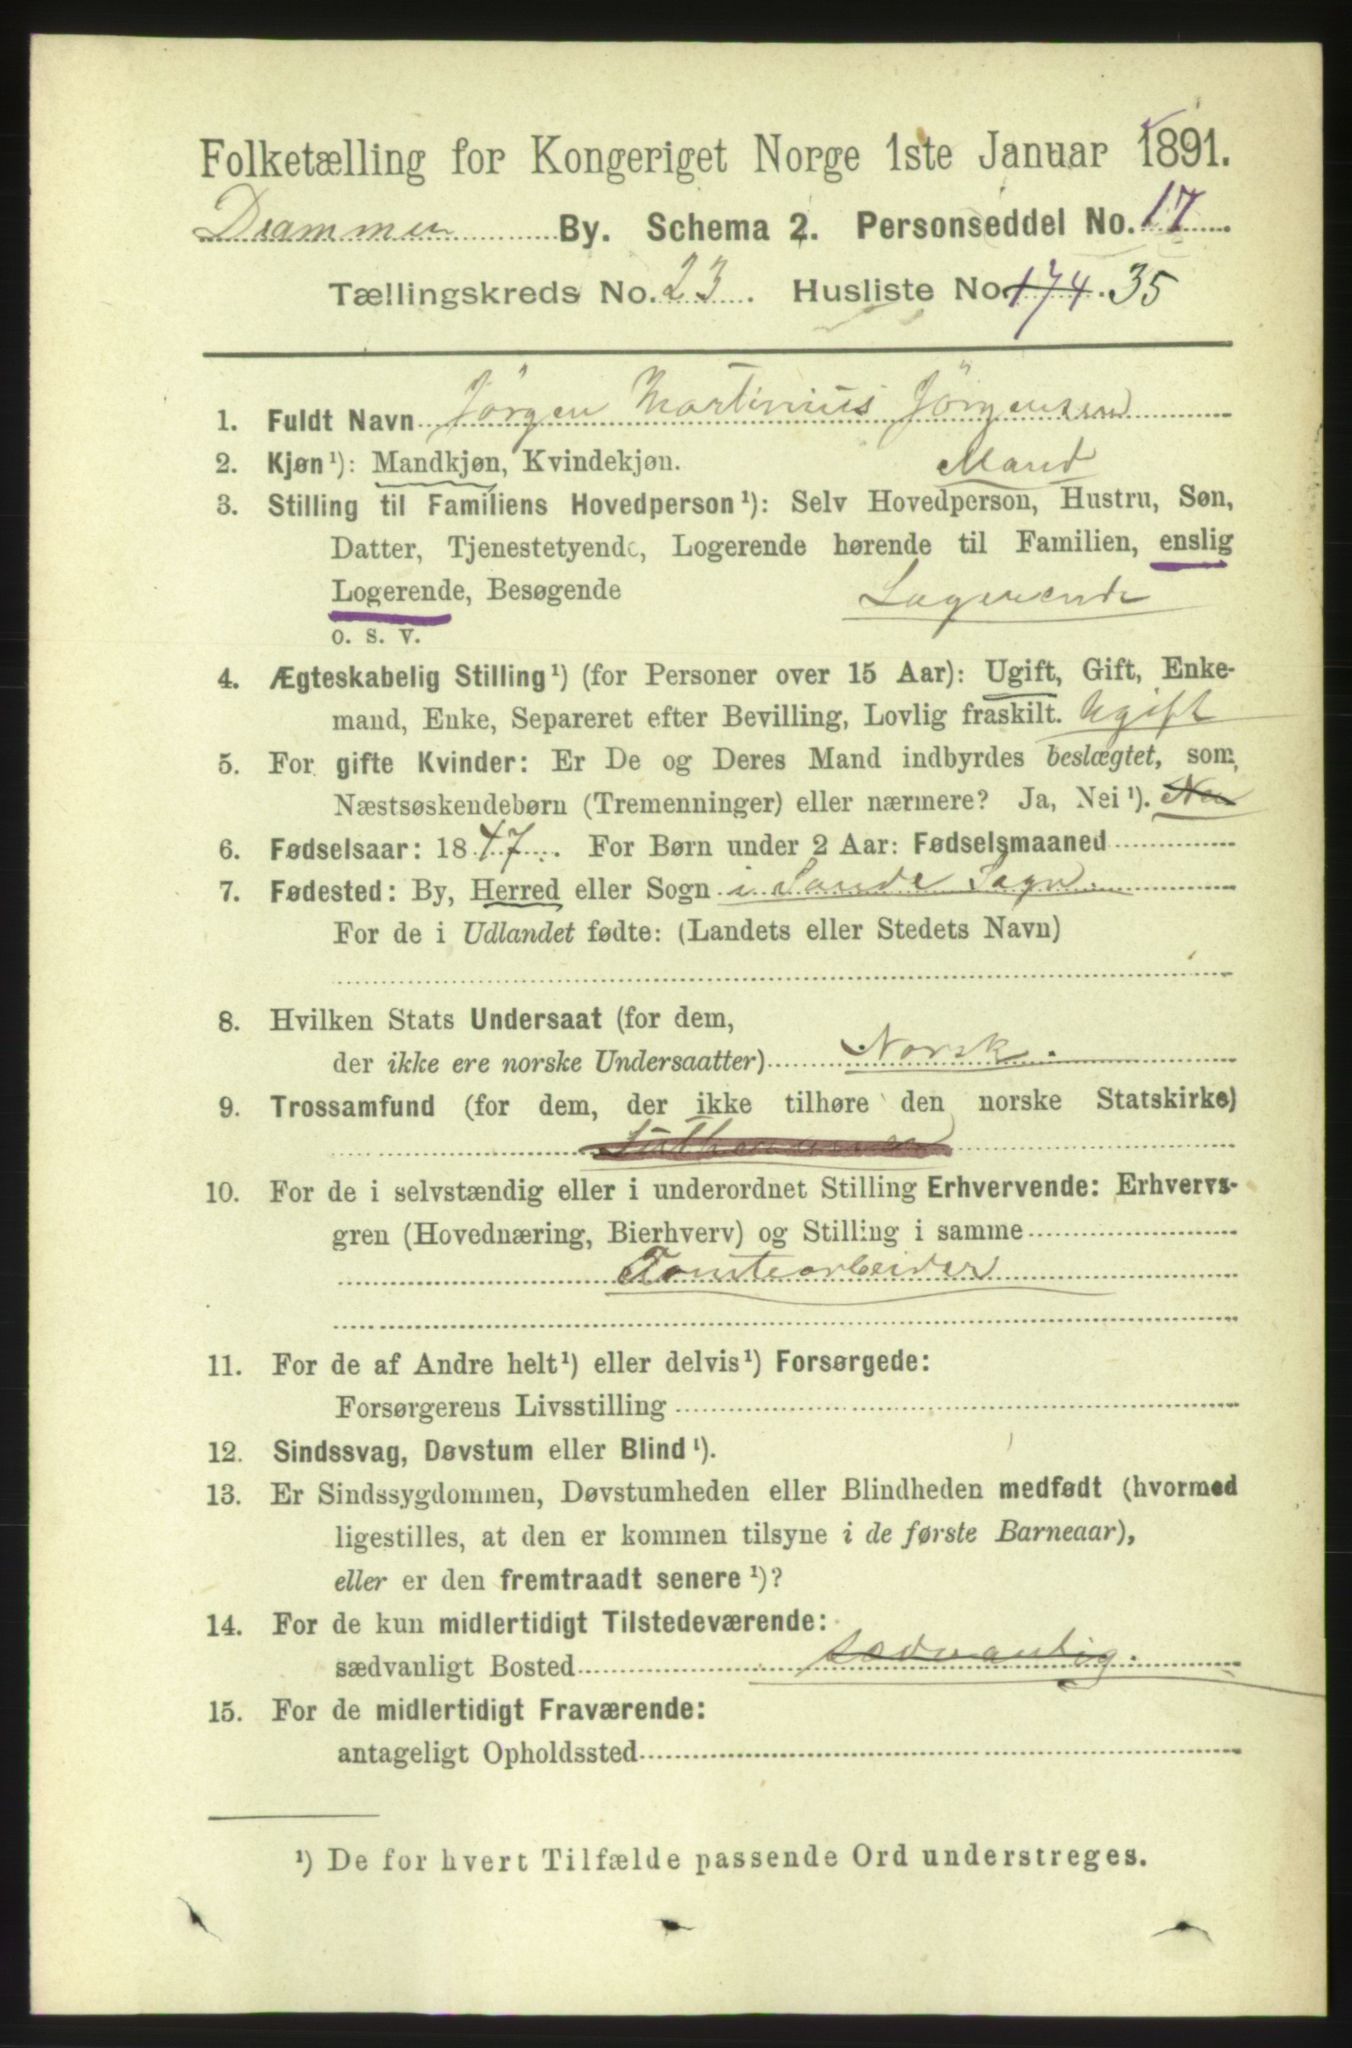 Folketælling for Kongeriget Norge 1ste Januar 1891.
Drammen By. Schema 2. Personseddel No. 17
Tællingskreds No. 23. Husliste No. 174. 35
1. Fuldt Navn Jörgen Martinius Jörgensen
2. Kjøn¹): Mandkjøn, Kvindekjøn. Mand
3. Stilling til Familiens Hovedperson¹): Selv Hovedperson, Hustru, Søn,
Datter, Tjenestetyende, Logerende hørende til Familien, enslig
Logerende, Besøgende Logerende
o. s. v.
4. Ægteskabelig Stilling¹) (for Personer over 15 Aar): Ugift, Gift, Enke-
mand, Enke, Separeret efter Bevilling, Lovlig fraskilt. Ugift
5. For gifte Kvinder: Er De og Deres Mand indbyrdes beslægtet, som
Næstsøskendebørn (Tremenninger) eller nærmere? Ja, Nei¹).
6. Fødselsaar: 1847. For Børn under 2 Aar: Fødselsmaaned
7. Fødested: By, Herred eller Sogn i Sande Sogn
For de i Udlandet fødte: (Landets eller Stedets Navn)
8. Hvilken Stats Undersaat (for dem,
der ikke ere norske Undersaatter) Norsk.
9. Trossamfund (for dem, der ikke tilhøre den norske Statskirke)
10. For de i selvstændig eller i underordnet Stilling Erhvervende: Erhvervs-
gren (Hovednæring, Bierhverv) og Stilling i samme
Tomtearbeider
11. For de af Andre helt¹) eller delvis¹) Forsørgede:
Forsørgerens Livsstilling
12. Sindssvag, Døvstum eller Blind¹).
13. Er Sindssygdommen, Døvstumheden eller Blindheden medfødt (hvormed
ligestilles, at den er kommen tilsyne i de første Barneaar),
eller er den fremtraadt senere¹)?
14. For de kun midlertidigt Tilstedeværende:
sædvanligt Bosted sædvanlig.
15. For de midlertidigt Fraværende:
antageligt Opholdssted
¹) De for hvert Tilfælde passende Ord understreges.